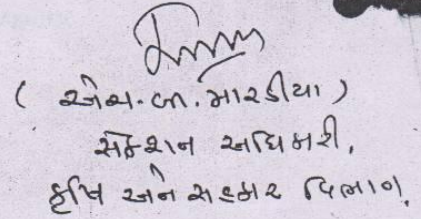 ( એસ.બી.મારડીયા )
સેક્શન અધિકારી,
કૃષિ અને સહકાર વિભાગ.